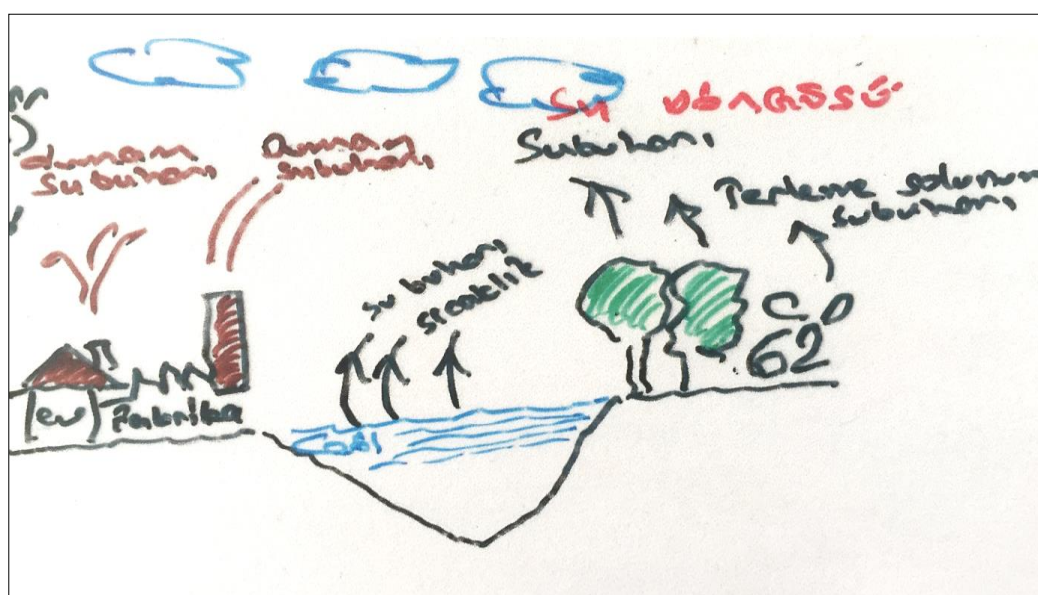 Su döngüsü
duman
subuharı
duman
subuharı
Subuharı
Terleme solunum
subuharı
su buharı
sıcaklık
ev
Fabrika